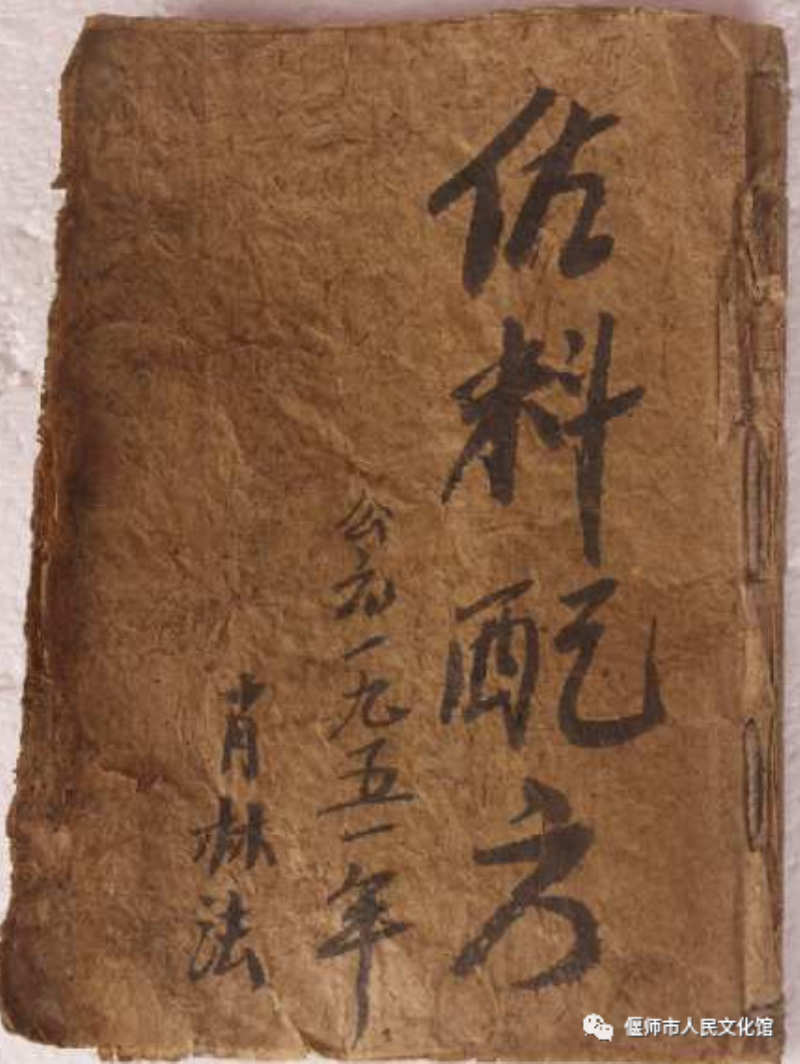 佐料配方
公元一九五一年
肖林法
偃师市人民文化馆